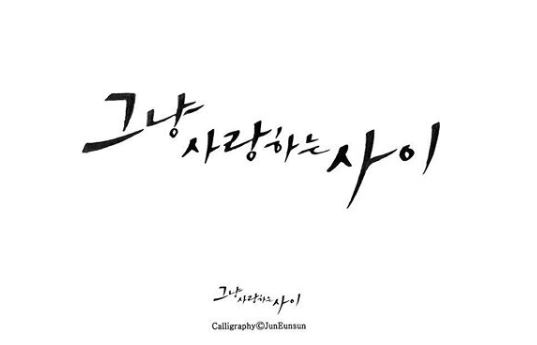 그냥 사랑하는 사이
그냥 사랑하는 사이
Calligraphy©JunEunsun